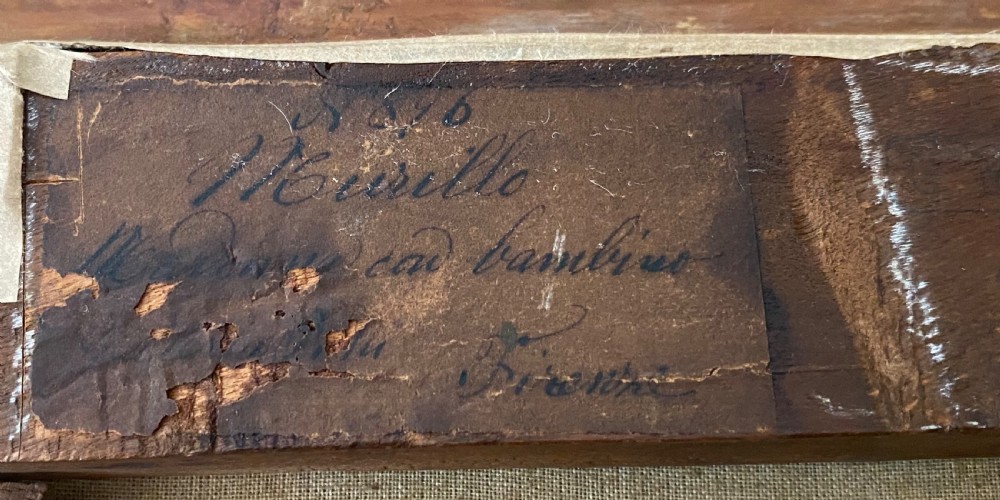 N 896
Murillo
Madonna col bambino
Firenze